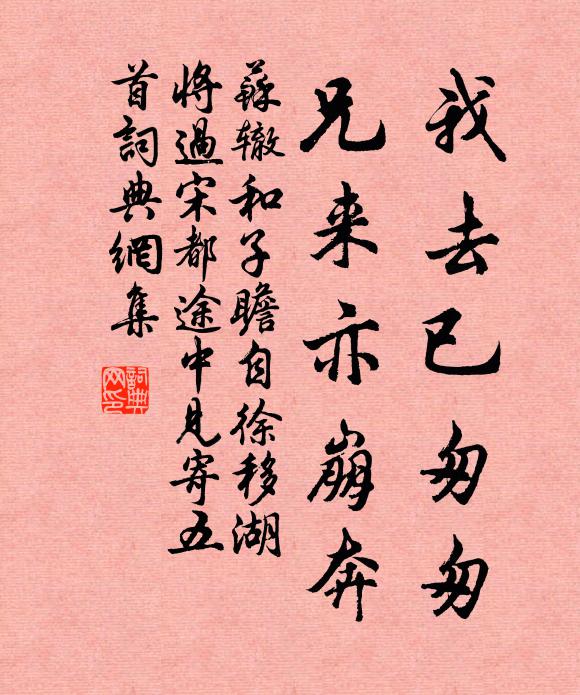 我去已匆匆
兄来亦崩奔
蘇辙和子瞻自徐移湖
將過宋都途中見寄五
首詞典網集
詞典
网印